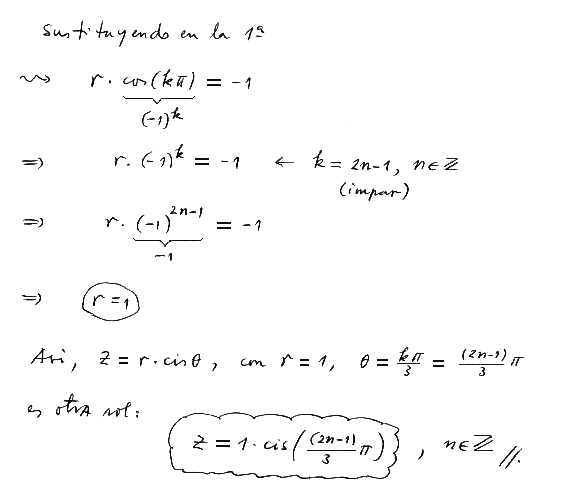 sustituyendo en la 1ª
⇝ r · cos(kπ) = -1
(-1)^k
⇒ r · (-1)^k = -1 ← k = 2n-1, n ∈ ℤ
(impar)
⇒ r · (-1)^{2n-1} = -1
-1
⇒ r = 1
Así, z = r · cis θ, con r = 1, θ = kπ/3 = (2n-1)/3 π
es otra sol:
z = 1 · cis((2n-1)/3 π), n ∈ ℤ //.